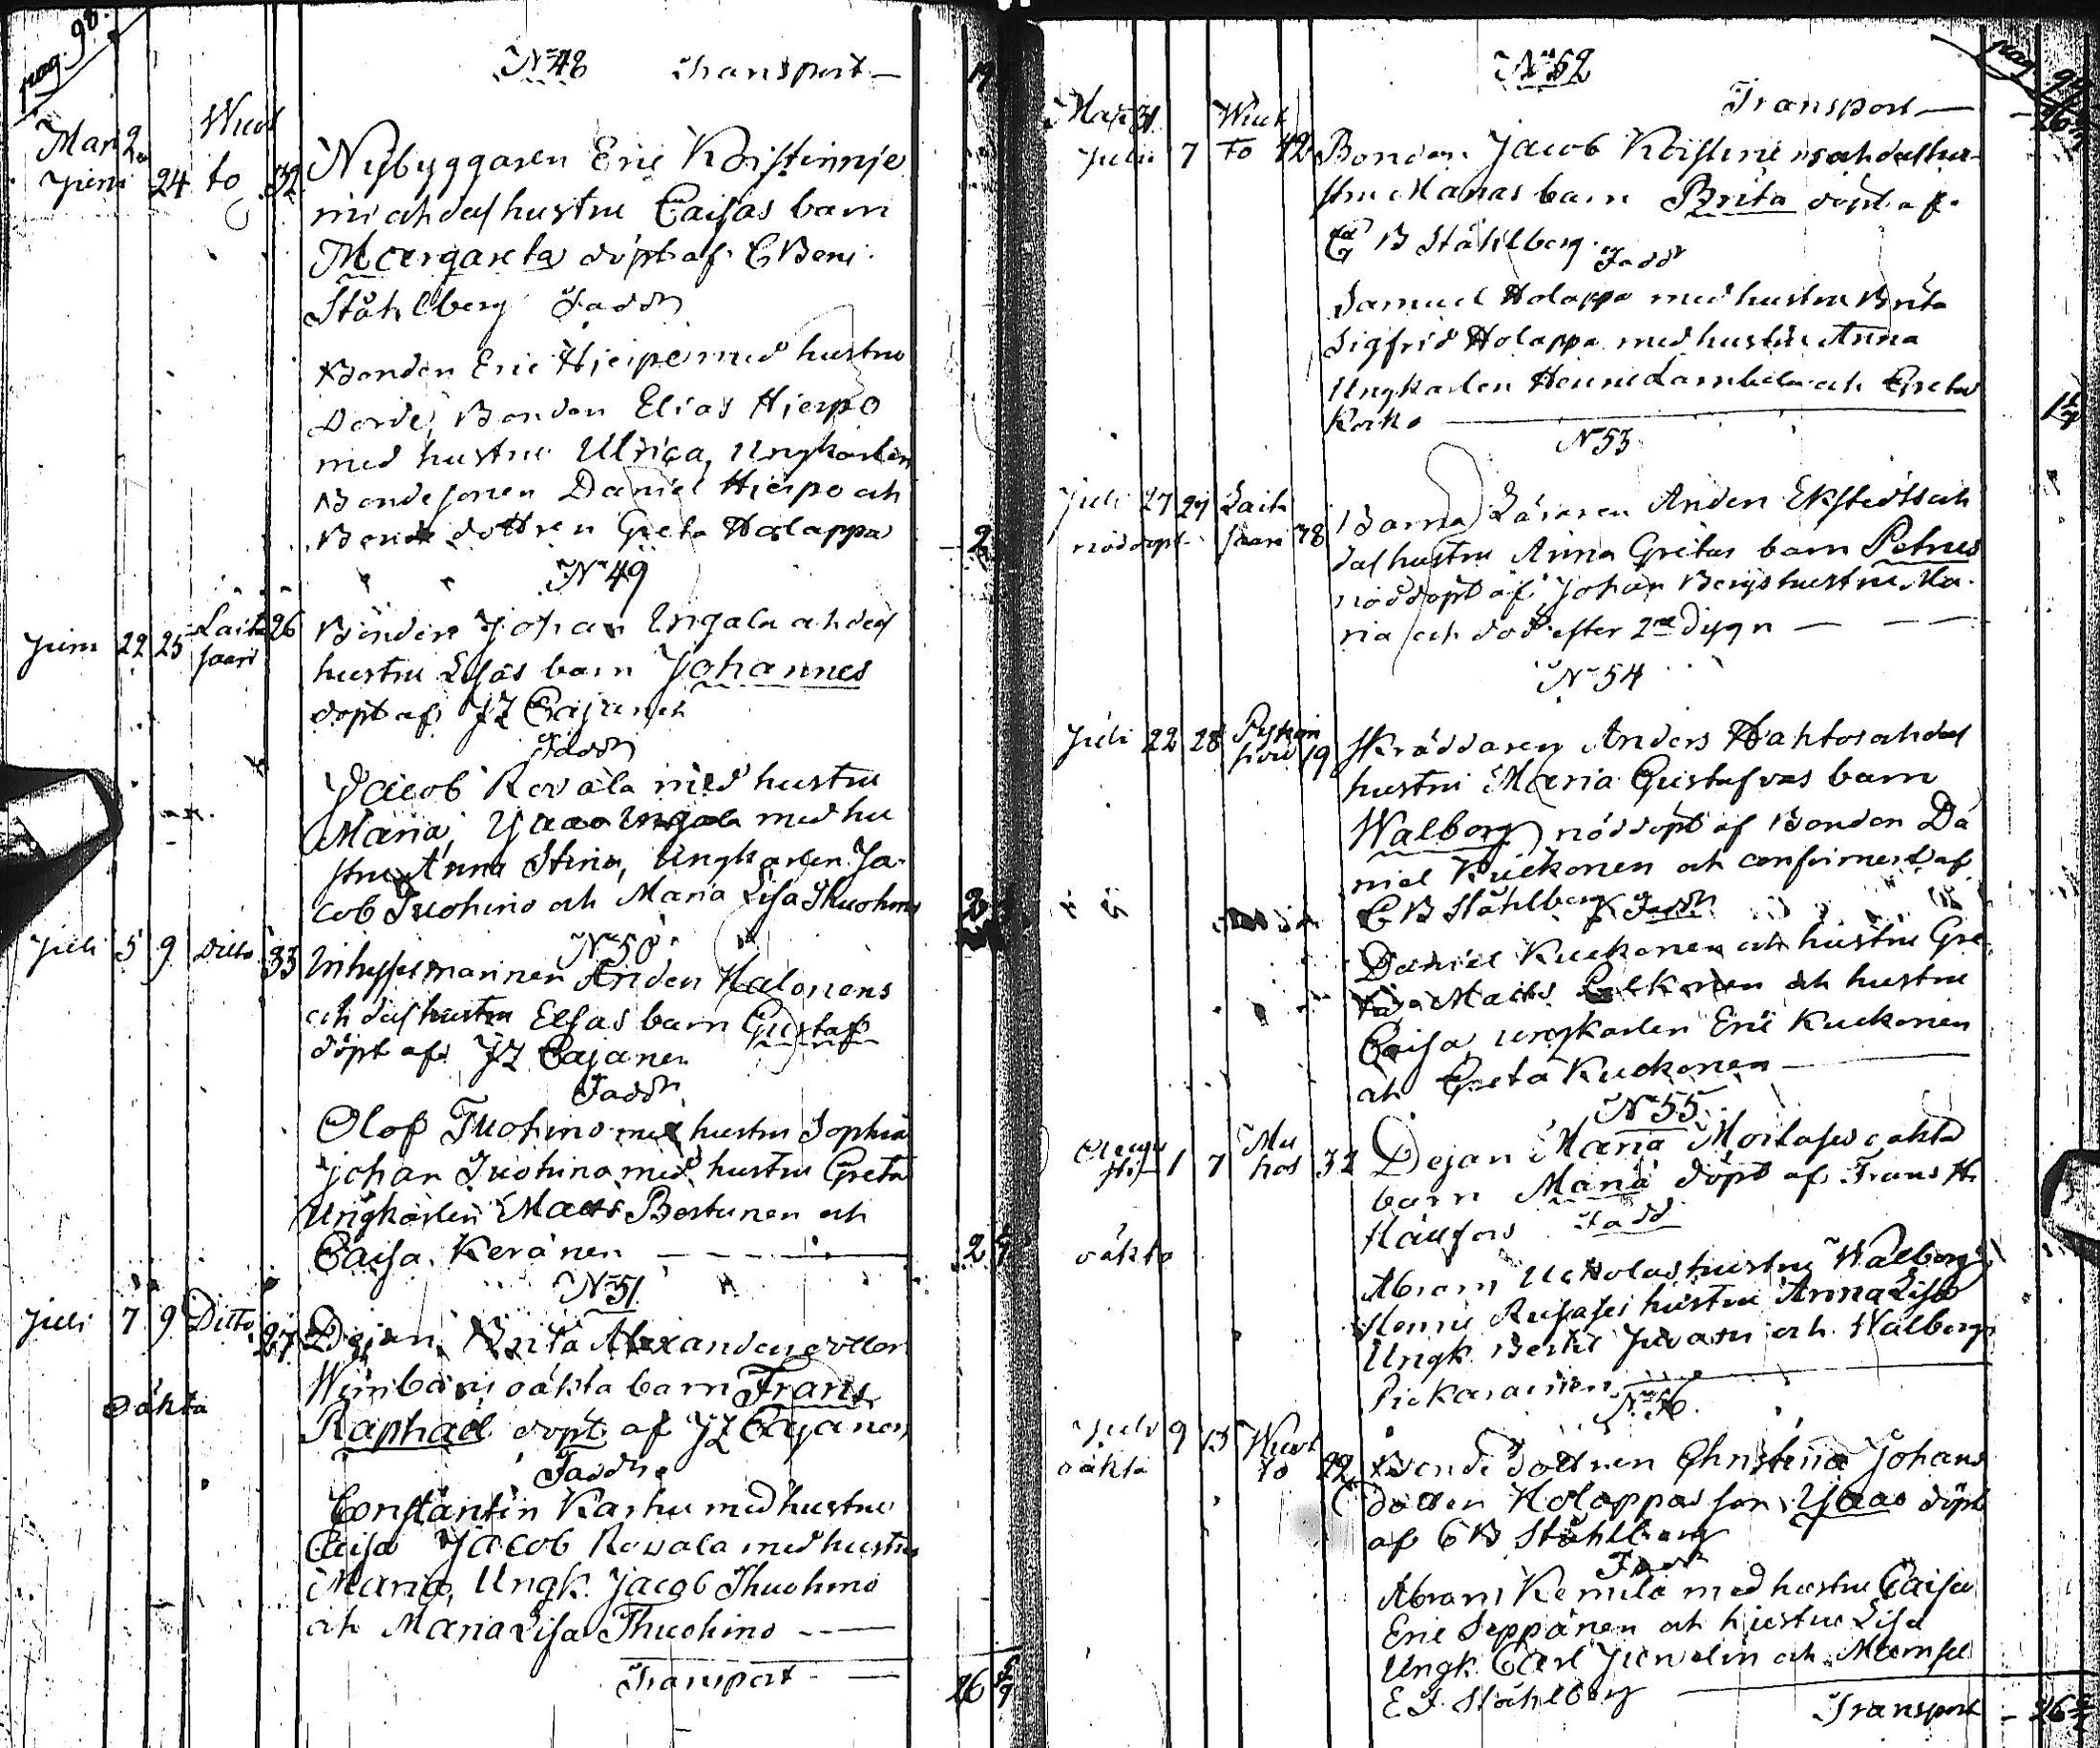 pag. 98.
N 48 Transport — 19
Mars 2 Wuol
Juni 24 to 32 Nybyggaren Eric Koistinnje
mi och das hustru Caisas barn
Margareta döpt af C Benj.
Ståhlberg Fadd
Bonden Eric Hierpe med hustru
Bonden Elias Hierpo
med hustru Ulrica, Ungkarlen
Bondesonen Daniel Hierpo och
Bonde dottren Greta Holappa 2
N 49
Juni 22 25 Laita saari 26 Bonden Johan Ingala och das
hustru Lisas barn Johannes
döpt af JZ Cajanen
Fadd
Jacob Rovala med hustru
Maria, Isaac Ingala med hu
stru Anna Stina, Ungkarlen Ja-
cob Tuohino och Maria Lisa Thuohino 2
N 50
Juli 5 9 Ditto 33 Inhysesmannen Anders Halonens
och das hustru Elsas barn Gustaf
döpt af JZ Cajanen
Fadd
Olof Tuohino med hustru Sophia
Johan Tuohino med hustru Greta
Ungkarlen Mats Bertunen och
Caisa Keränen — — — 2
N 51
Juli 7 9 Ditto 27 Dejan Brita Alexandersdotter
oäkta barn Frans
oäkta
Raphael döpt af JZ Cajanen
Fadd
Constantin Karhu med hustru
Caisa Jacob Rovala med hustru
Maria, Ungk. Jacob Thuohino
och Maria Lisa Thuohino — —
Transport — 26
pag 99
N 52
Transport —
Mars 31 Wuol
Julii 7 to 42 Bonden Jacob Koistinens och das hu-
stru Marias barn Brita döpt af
C B Ståhlberg. Fadd
Samuel Holappa med hustru Brita
Sigfrid Holappa med hustru Anna
Ungkarlen Henric Lambela och Greta
Korko — 1
N 53
Juli 27 29 Laita saari 38 Barna Läraren Anders Ekstedts och
nöddöpt
das hustru Anna Gretas barn Petrus
nöddöpt af Johan Bergs hustru Ma-
ria och död efter 2 dygn — — —
N 54
Juli 22 28 19 Skräddaren Anders Hahtos och das
hustru Maria Gustafvas barn
Walborg nöddöpt af Bonden Da
niel Kuckonen och confirmerat af
C B Ståhlberg Fadd
Daniel Kuckonen och hustru Gre
ta Mats och hustru
Caisa, ungkarlen Eric Kuckonen
och Greta Kuckonen —
N 55
Augu sti 1 7 Mu hos 32 Dejan Maria oäkta
barn Maria döpt af Frans H.
Fadd
oäkta
Abram hustru Walborg
Henric hustru Anna Lisa
Ungk. Bertil och Walborg
Pickarainen
N 56.
Juli 9 13 Wuol to 22 Bonde dottren Christina Johans
oäkta
dotter Holappas son Isaac döpt
af C B Ståhlberg
Fadd
Abram Kemilä med hustru Caisa
Eric Seppänen och hustru Lisa
Ungk. Carl Junelin och Mamsel
E. F. Ståhlberg —
Transport — 26